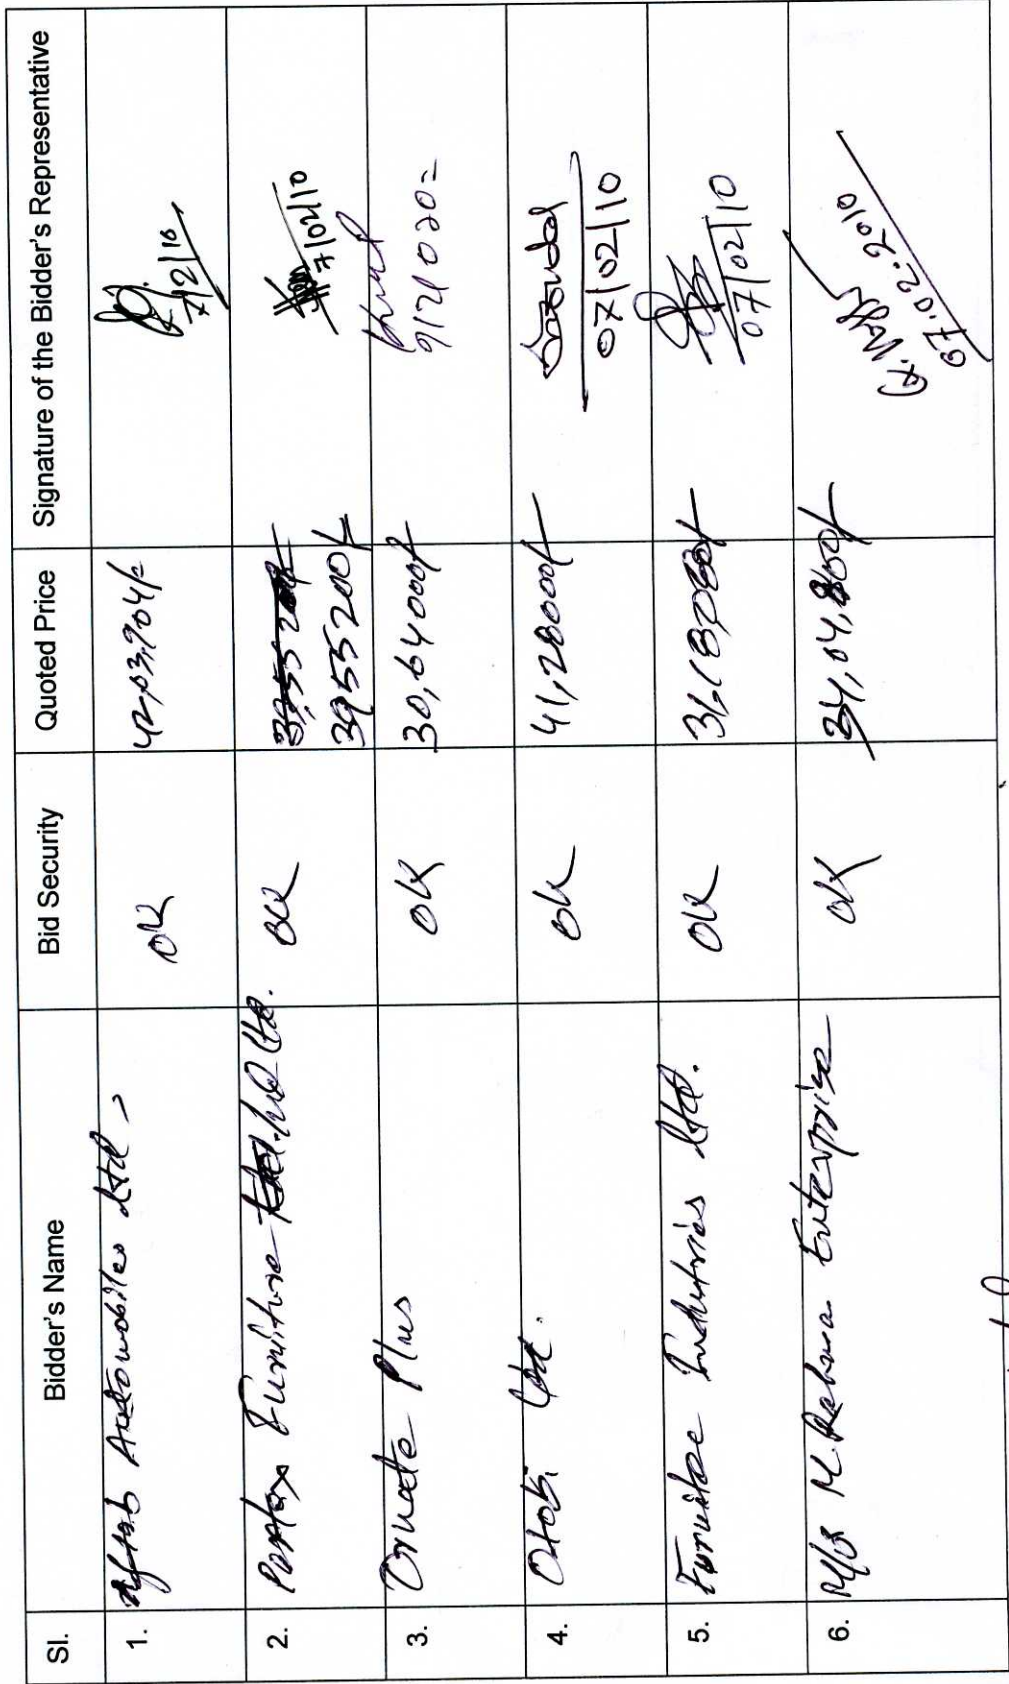 Sl. Bidder's Name Bid Security Quoted Price Signature of the Bidder's Representative
1. Aftab Automobiles Ltd. OK 42,03,904/=
7/2/10
2. Partex Furniture Ind. Ltd. OK 3955200/-
7/02/10
3. Ornate Plus OK 30,64000/-
4. Otobi Ltd. OK 41,28000/-
07/02/10
5. Furnitec Industries Ltd. OK
07/02/10
6. M/S M. Rahman Enterprise OK 34,04,800/-
07.02.2010